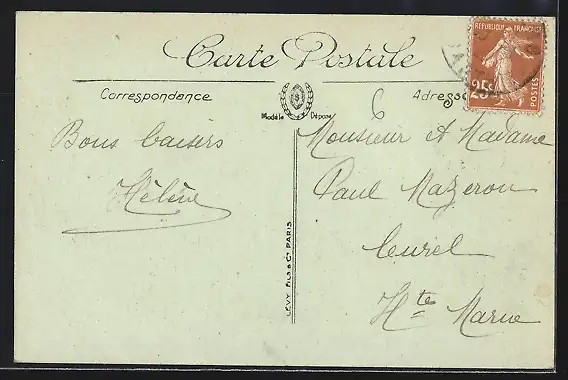 Carte Postale
REPUBLIQUE FRANÇAISE
25c
POSTES
Correspondance
Modèle Déposé
Adresse
6
Bons baisers
Hélène
Monsieur et Madame
Paul Mazeron
Curel
Hte Marne
LÉVY FILS & Cie PARIS